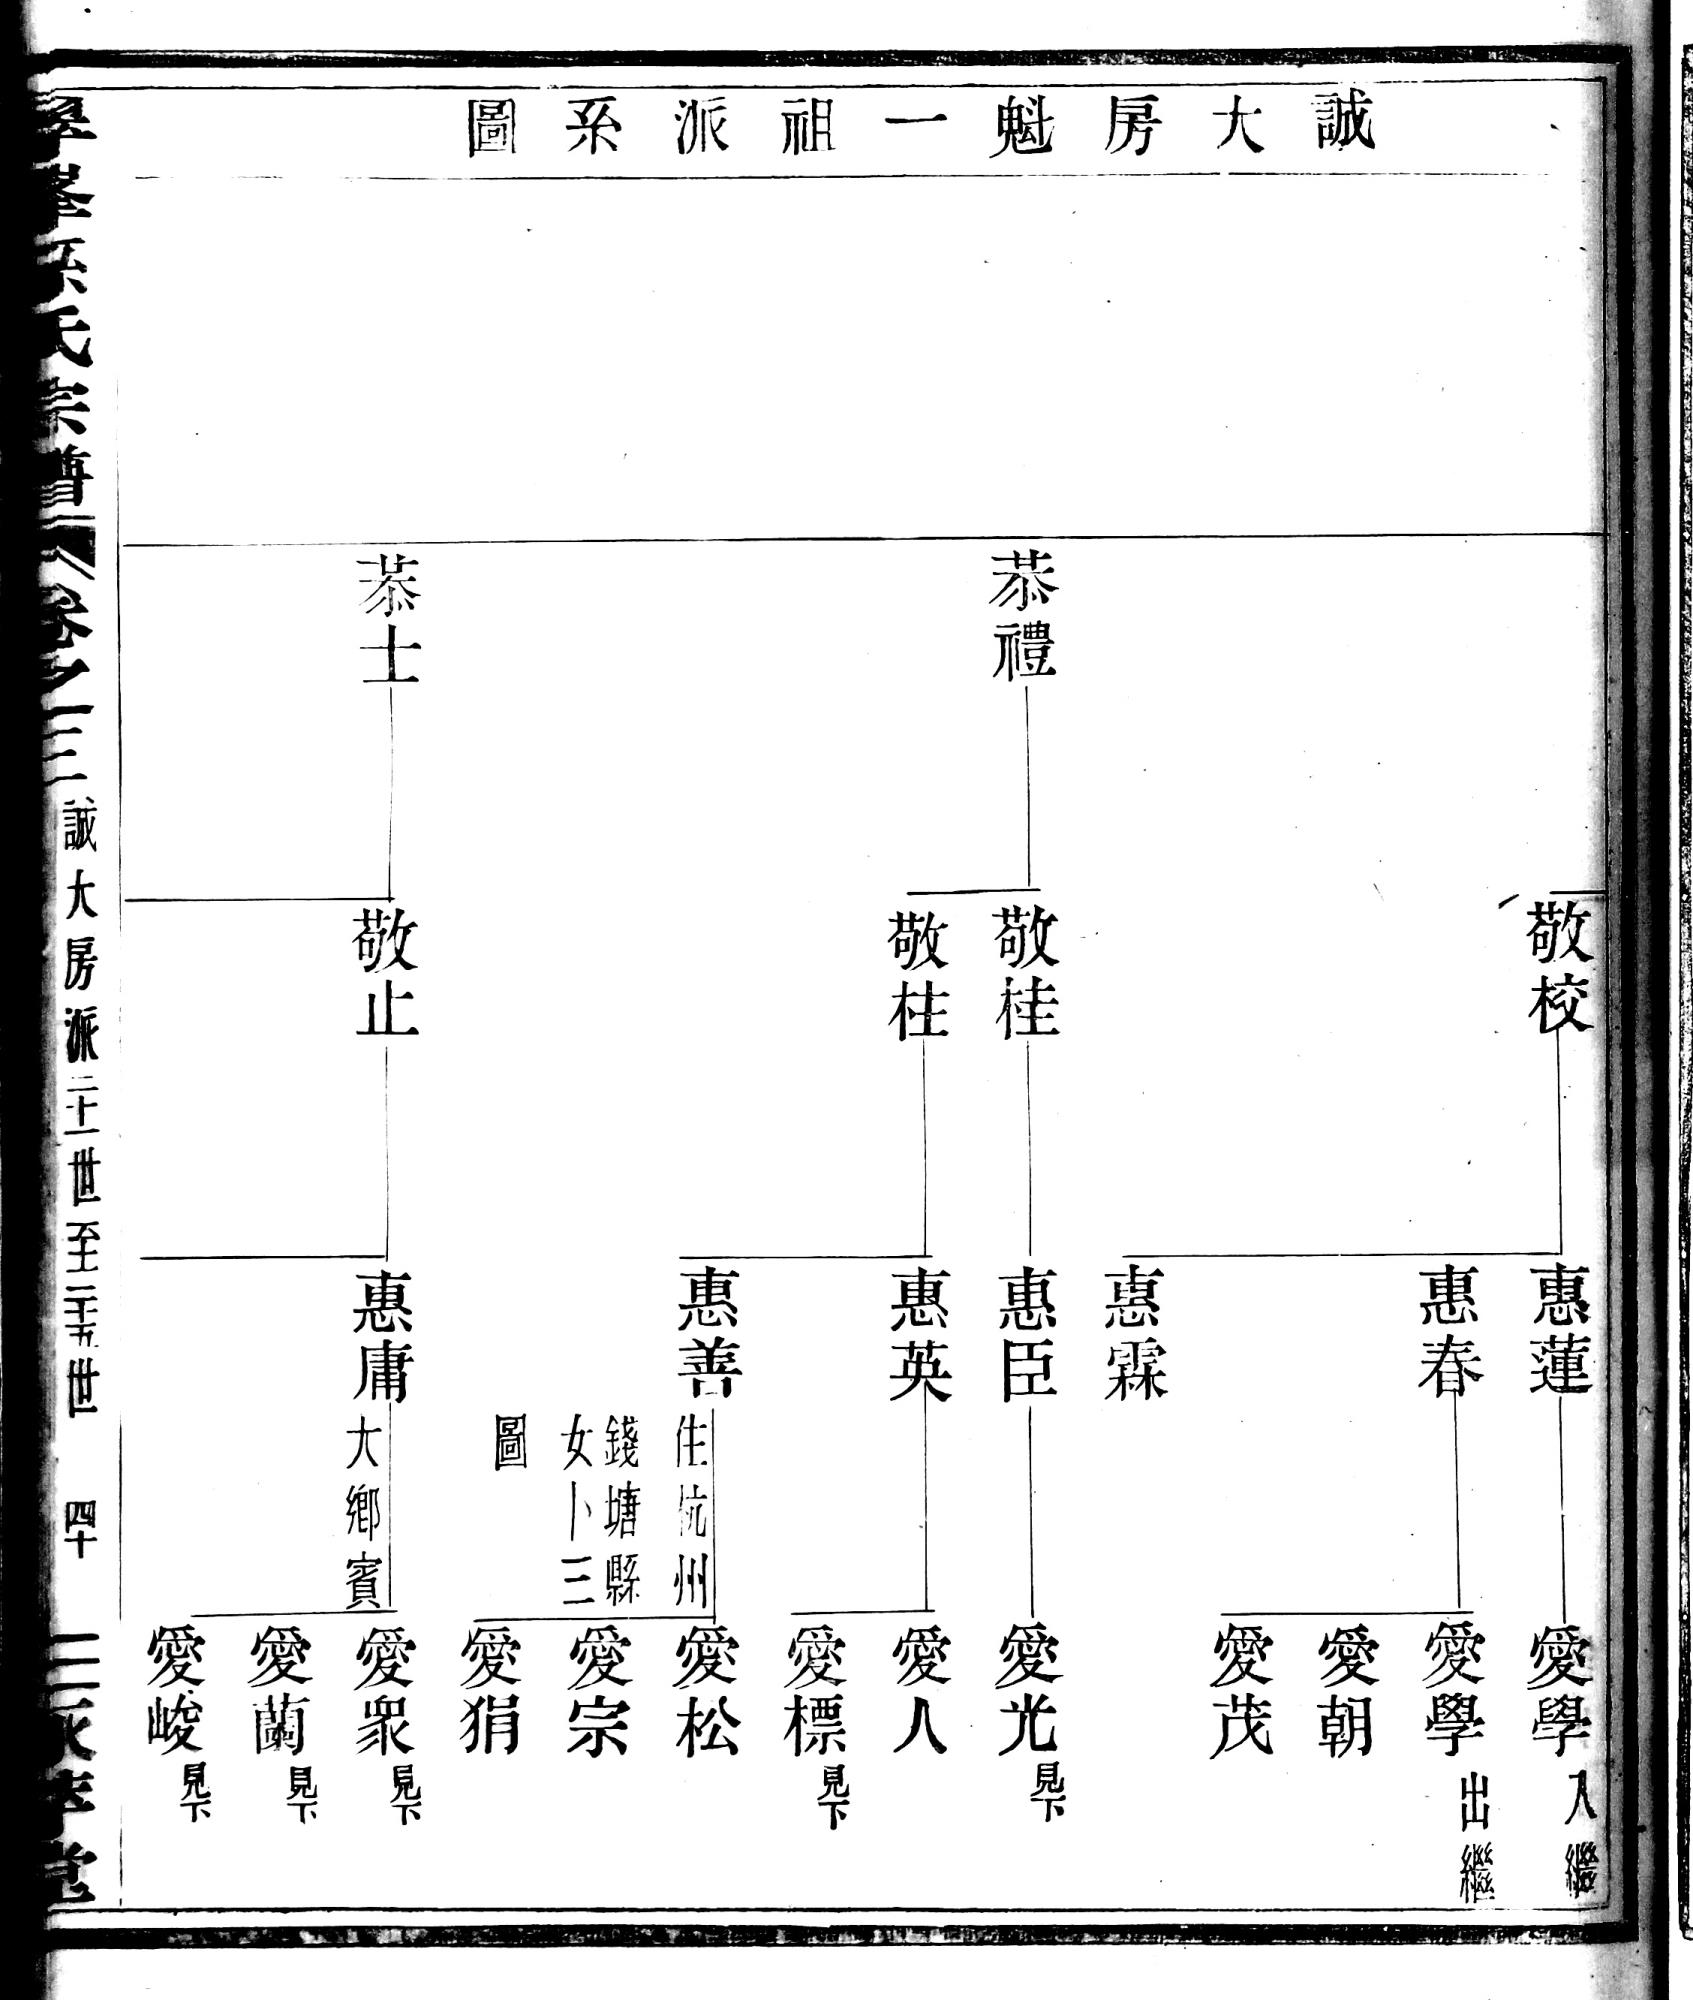 誠大房魁一祖派系圖
恭禮
恭士
敬校
敬桂
敬柱
敬止
惠蓮
惠春
惠霖
惠臣
惠英
惠善
住杭州
錢塘縣
女卜三
圖
惠庸
大鄉賓
愛學 入繼
愛學 出繼
愛朝
愛茂
愛光 見下
愛人
愛標 見下
愛松
愛宗
愛狷
愛衆 見下
愛蘭 見下
愛峻 見下
峯孫氏宗譜 卷之三 誠大房派二十一世至二十五世 四十